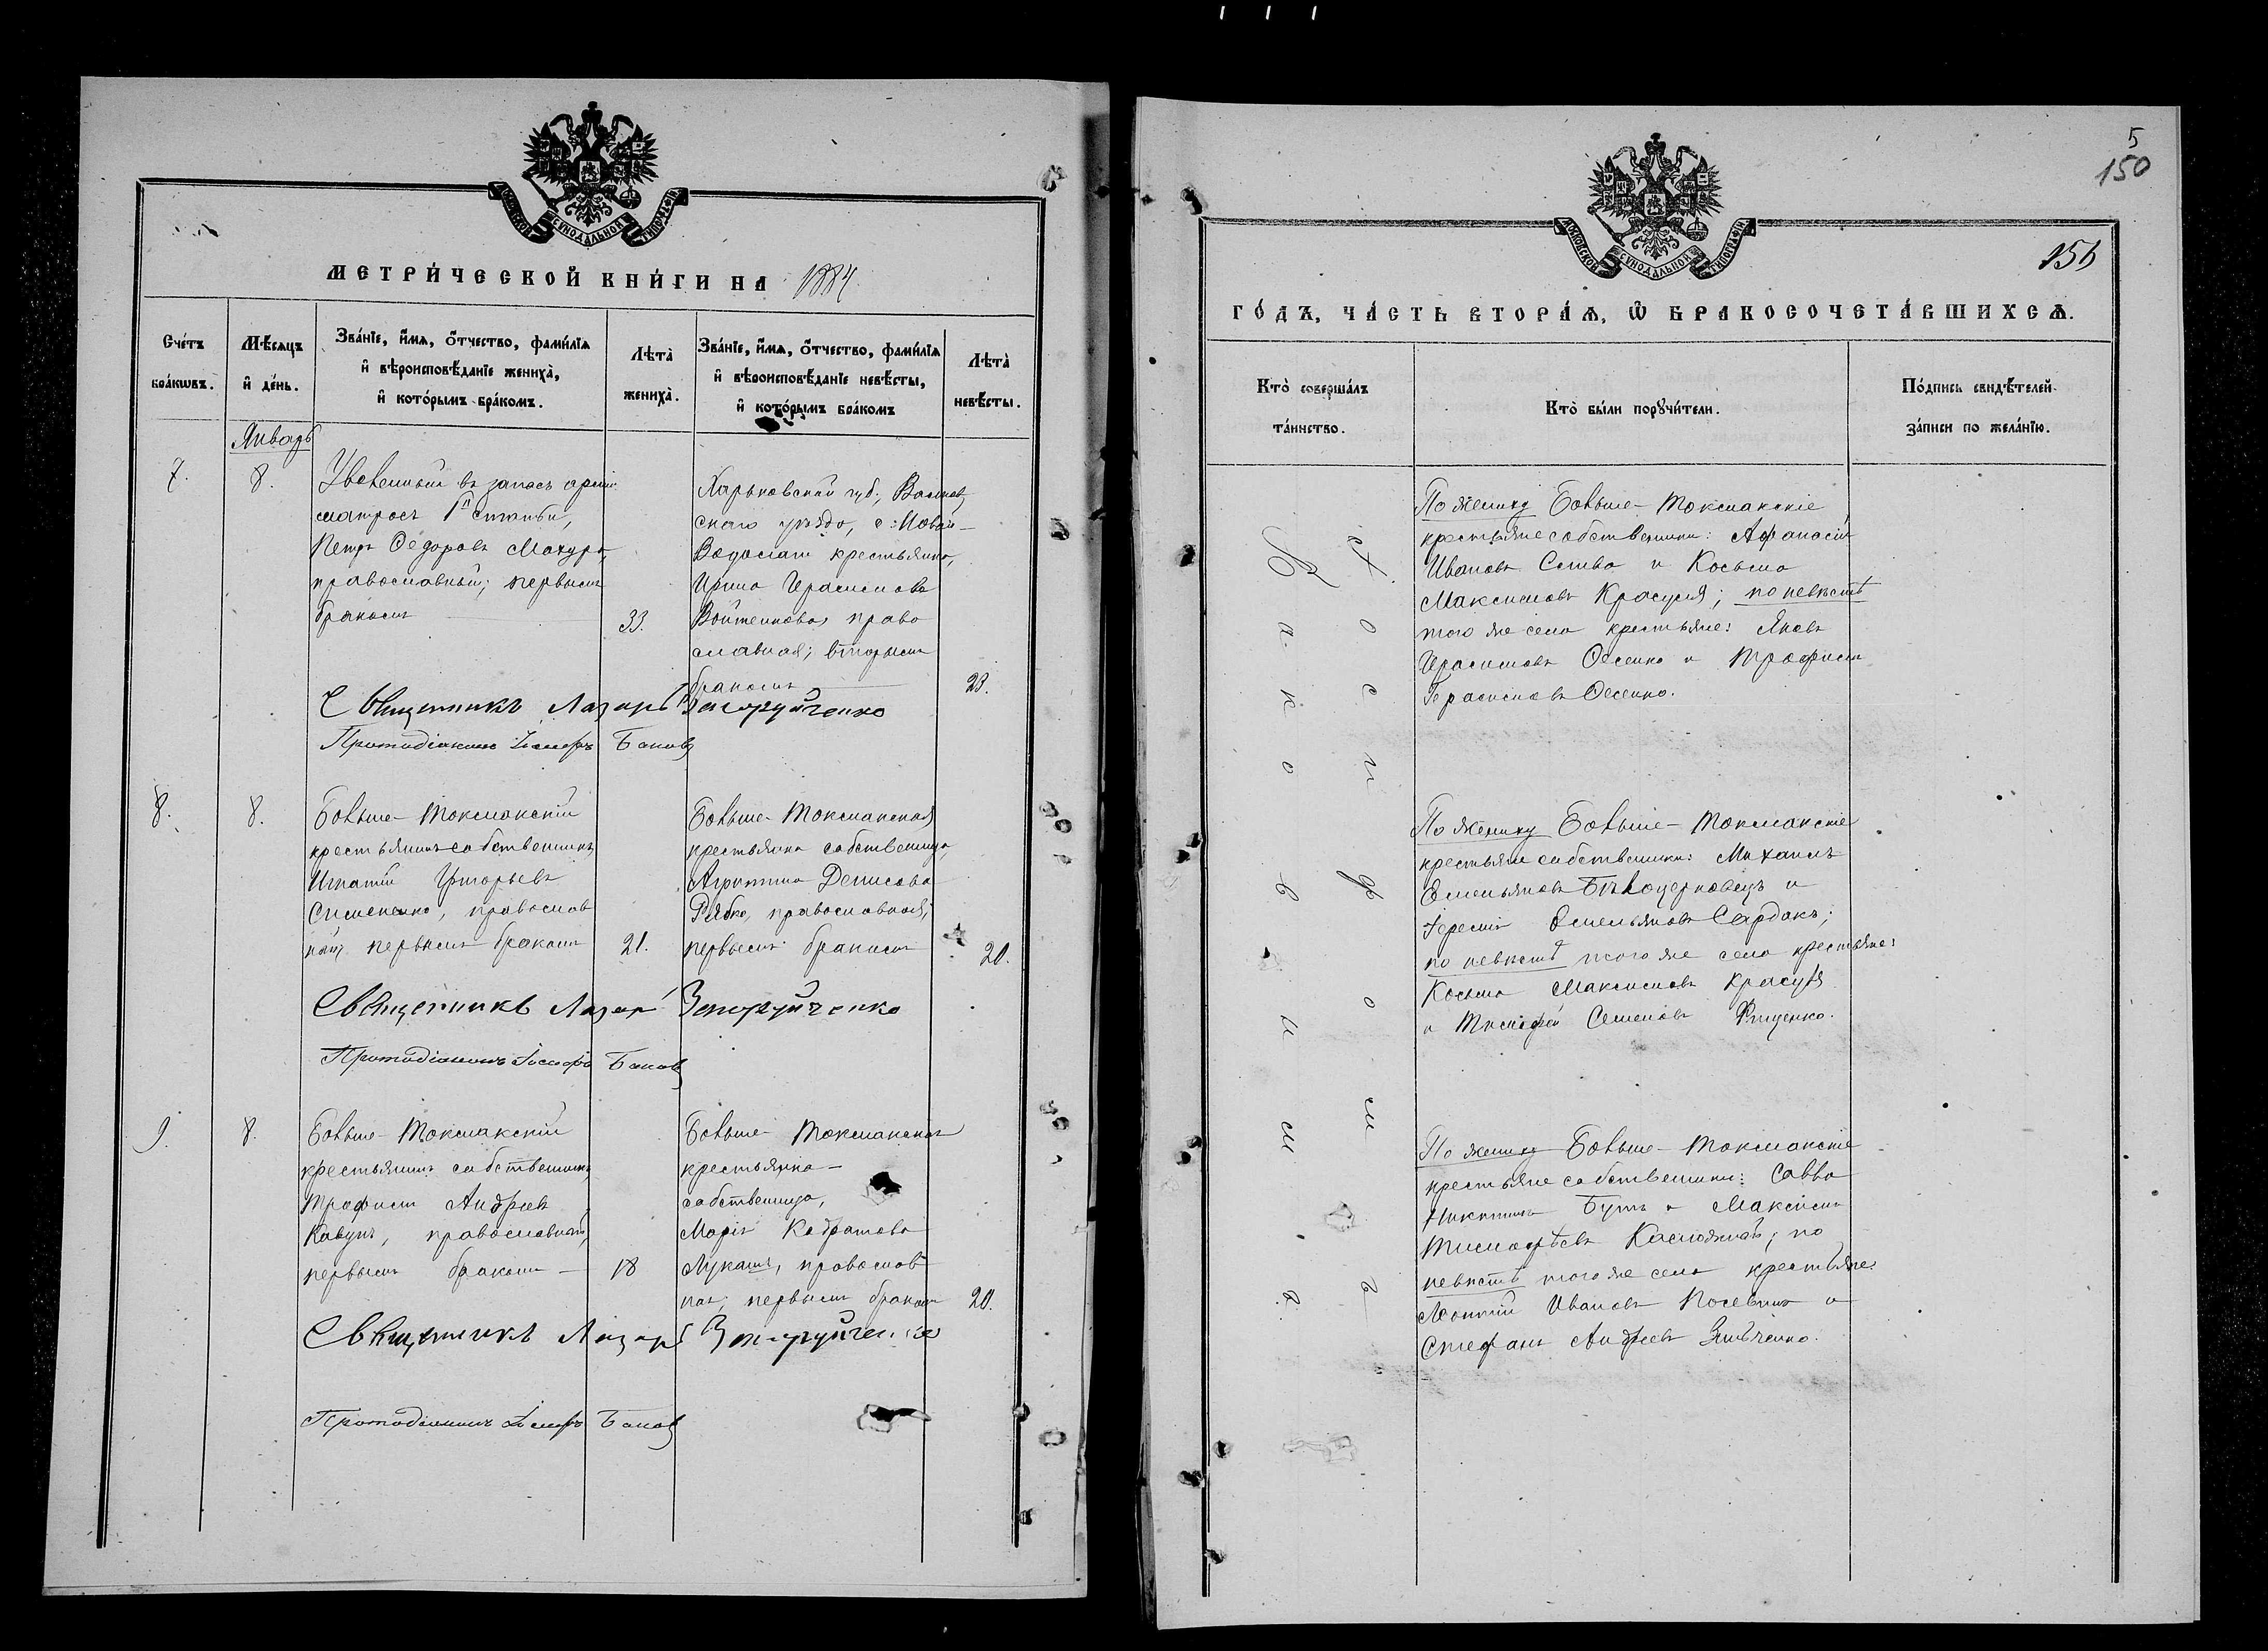 МОСКОВСКОЙ СѴНОДАЛЬНОЙ ТИПОГРАФІИ
МЕТРИ́ЧЕСКОЙ КНИ́ГИ НА 1884
Сче́тъ бра́кѡвъ.
Мѣ́сяцъ и҆ де́нь.
Зва́ніе, и҆́мѧ, ѻ҆́тчество, фами́лїѧ и҆ вѣроисповѣ́даніе жениха̀, и҆ кото́рымъ бра́комъ.
Лѣта̀ жениха̀.
Зва́ніе, и҆́мѧ, ѻ҆́тчество, фами́лїѧ и҆ вѣроисповѣ́даніе невѣ́сты, и҆ кото́рымъ бра́комъ
Лѣта̀ невѣ́сты.
Январь
7.
8.
Уволенный въ запасъ арміи
матросъ 1й статьи,
Петръ Ѳедоровъ Махура,
православный; первымъ
бракомъ
33.
Харьковской губ., Валков
скаго уѣзда, с. Новой
Водолаги крестьянка,
Ирина Герасимова
Войтенкова, право
славная; вторымъ
бракомъ
23.
Священникъ Лазарь
Протодіаконъ Іосифъ Баковъ
8.
8.
Больше-Токмакскій
крестьянинъ собственникъ
Игнатій Григорьевъ
Симоненко, православ
ный первымъ бракомъ
21.
Больше-Токмакская
крестьянка собственница,
Агрипина Денисова
Рябко, православная,
первымъ бракомъ
20.
Священникъ Лазарь
Протодіаконъ Іосифъ Баковъ
9.
8.
Больше-Токмакскій
крестьянинъ собственникъ
Трофимъ Андреевъ
Кавунъ, православный,
первымъ бракомъ
18
Больше-Токмакская
крестьянка-
собственница,
Марія Кодратова
Лукашъ, православ
ная, первымъ бракомъ
20.
Священникъ Лазарь
Протодіаконъ Іосифъ Баковъ
5
150
МОСКОВСКОЙ СѴНОДАЛЬНОЙ ТИПОГРАФІИ
ГО́ДЪ, ЧА́СТЬ ВТОРА́Ѧ, Ѡ҆ БРАКОСОЧЕТА́ВШИХСѦ.
Кто̀ соверша́лъ та́инство.
Кто̀ бы́ли порꙋчи́тели.
По́дпись свидѣ́телей за́писи по жела́нїю.
По жениху Больше-Токмакскіе
крестьяне собственники: Афанасій
Ивановъ и Косьма
Максимовъ Красуля; по невѣстѣ
того же села крестьяне: Яковъ
Герасимовъ и Трофимъ
Герасимовъ
По жениху Больше-Токмакскіе
крестьяне собственники: Михаилъ
Емельяновъ Бѣлоцерковецъ и
Іеремія Емельяновъ Сердакъ;
по невѣстѣ того же села крестьяне:
Косьма Максимовъ Красуля
и Тимофей Семеновъ
По жениху Больше-Токмакскіе
крестьяне собственники: Савва
Никитинъ Бутъ и Максимъ
Тимофѣевъ по
невѣстѣ того же села крестьяне:
Леонтій Ивановъ и
Стефанъ Андреевъ